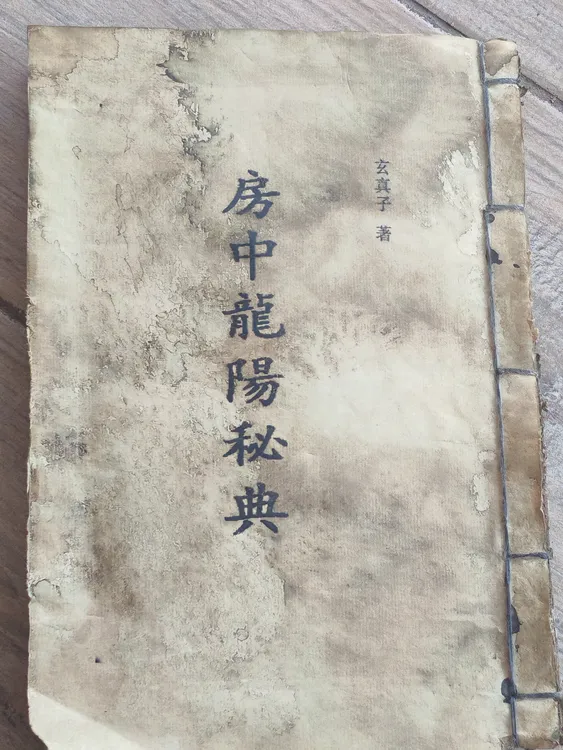 玄真子 著
房中龍陽秘典